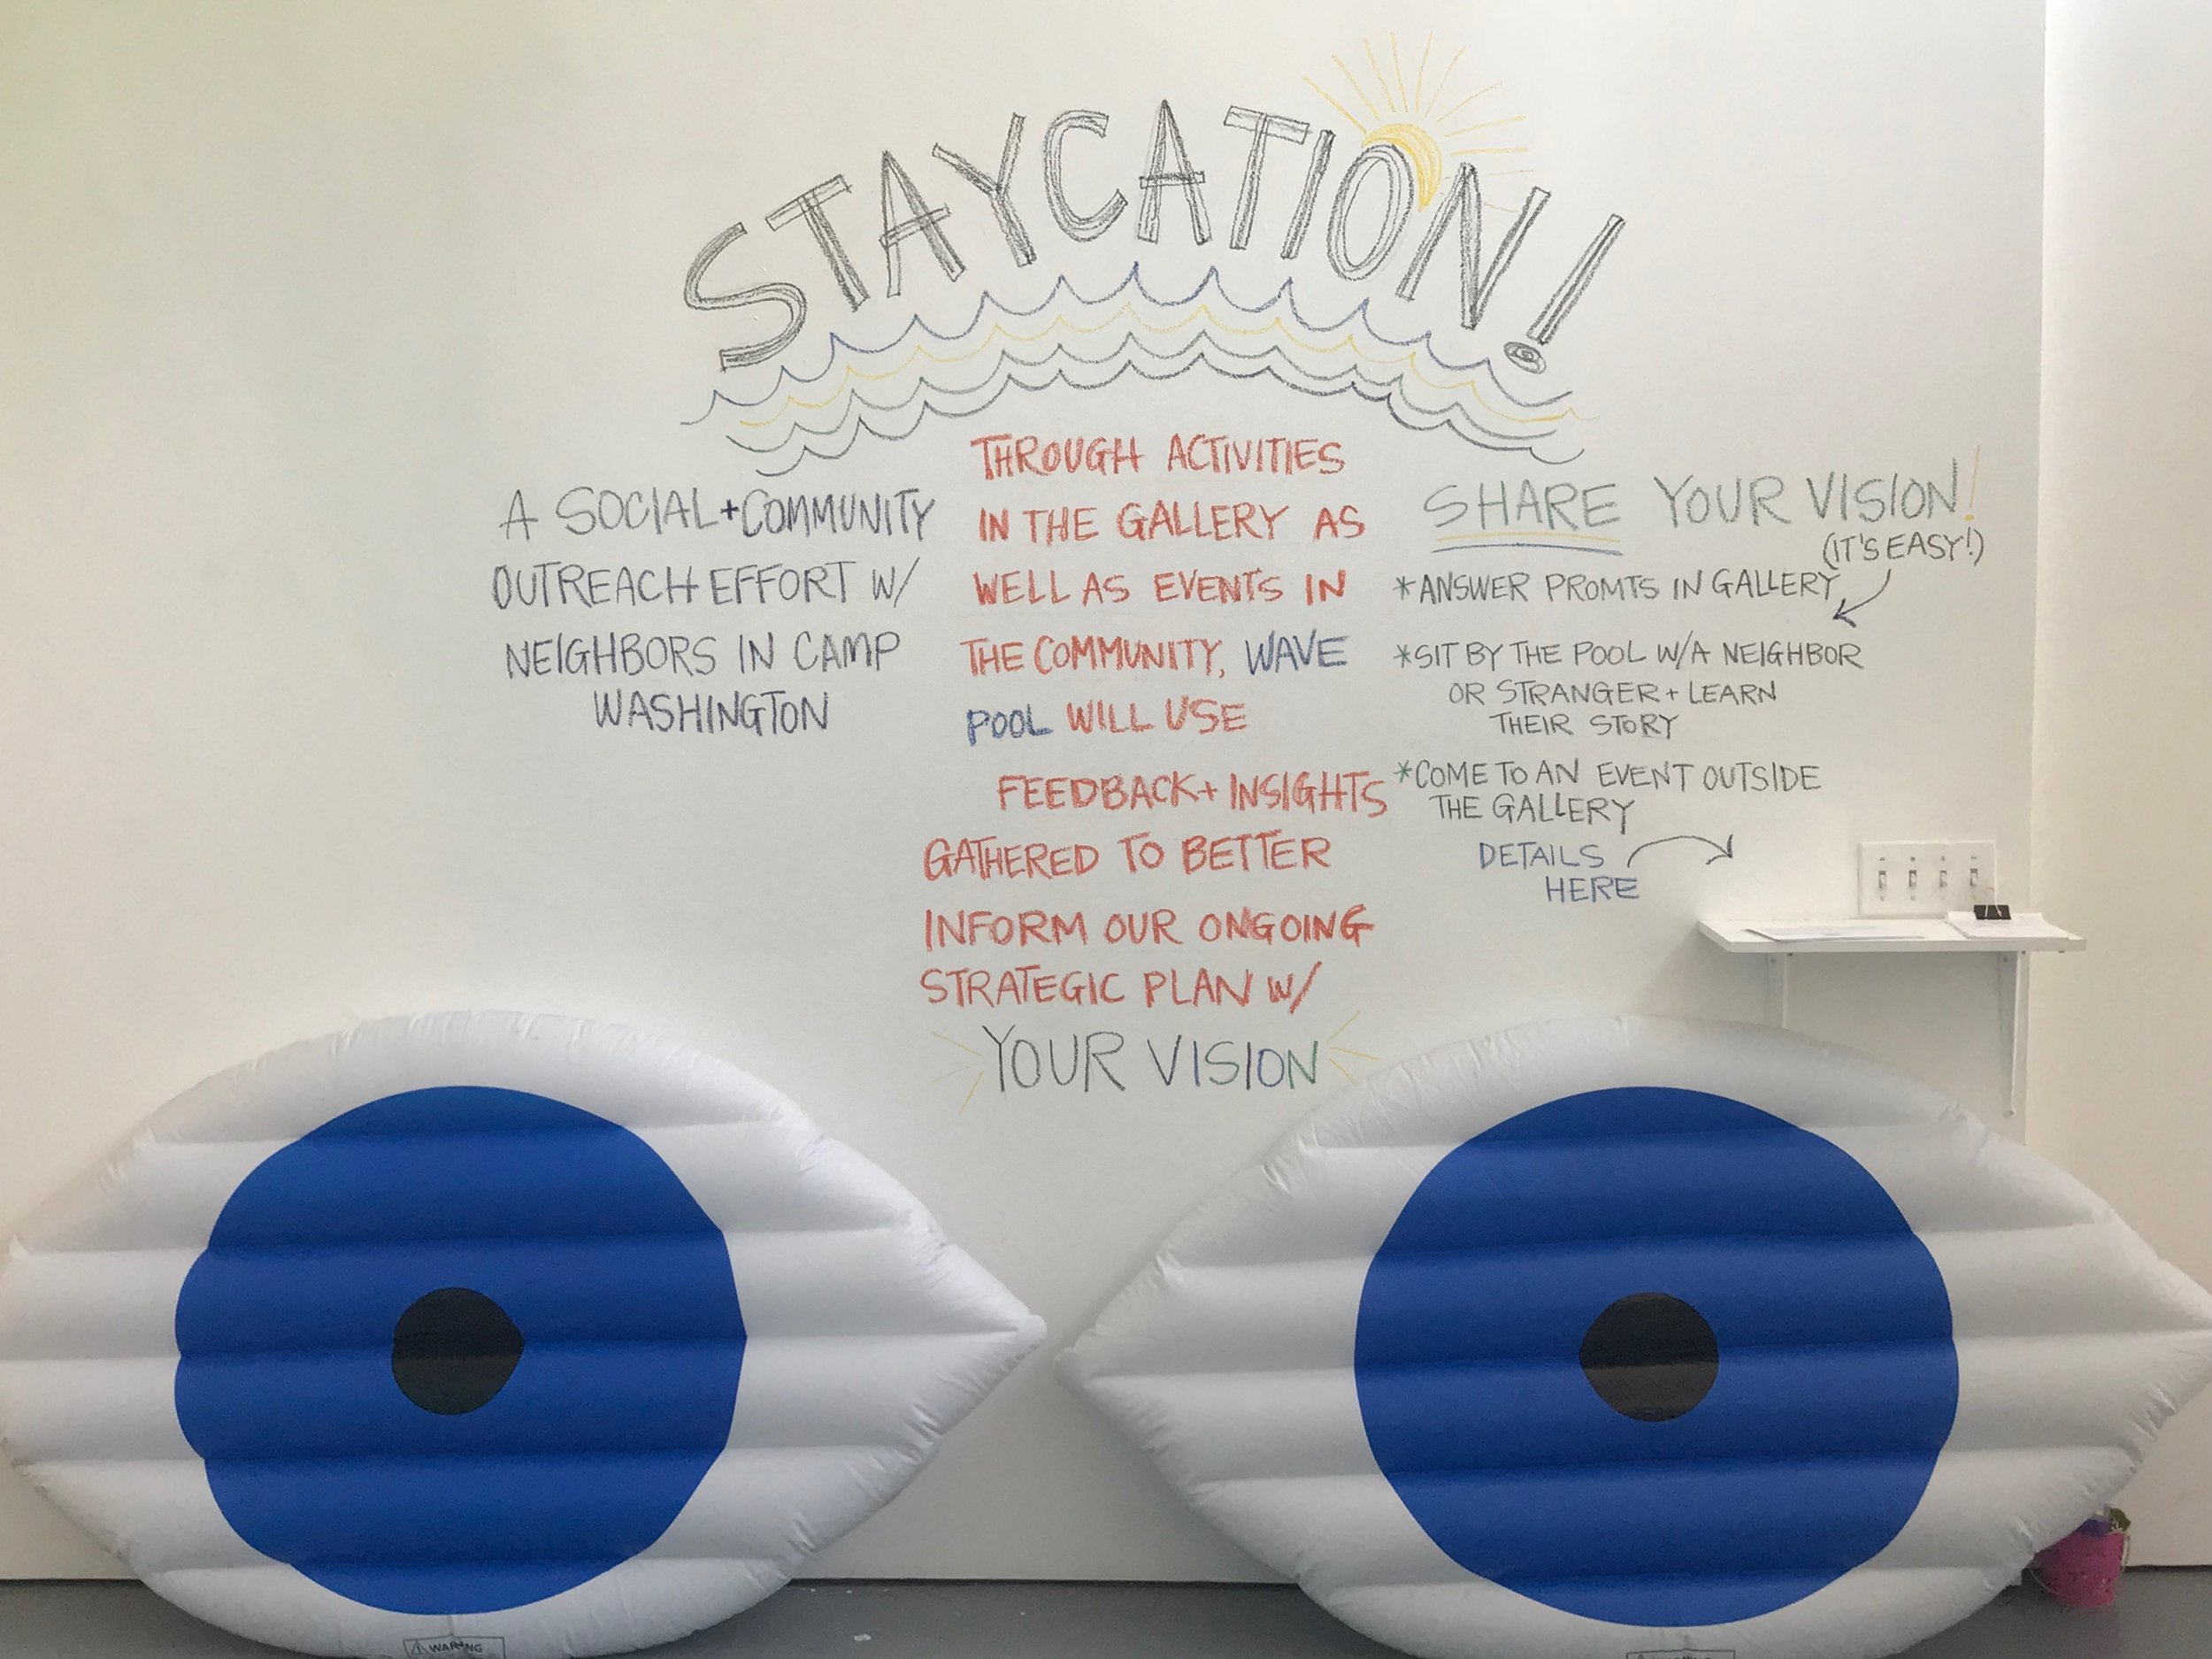 STAYCATION!
A SOCIAL+COMMUNITY
OUTREACH EFFORT W/
NEIGHBORS IN CAMP
WASHINGTON
THROUGH ACTIVITIES
IN THE GALLERY AS
WELL AS EVENTS IN
THE COMMUNITY, WAVE
POOL WILL USE
FEEDBACK+ INSIGHTS
GATHERED TO BETTER
INFORM OUR ONGOING
STRATEGIC PLAN W/
YOUR VISION
SHARE YOUR VISION!
(IT'S EASY!)
*ANSWER PROMTS IN GALLERY
*SIT BY THE POOL W/A NEIGHBOR
OR STRANGER + LEARN
THEIR STORY
*COME TO AN EVENT OUTSIDE
THE GALLERY
DETAILS
HERE
WARNING